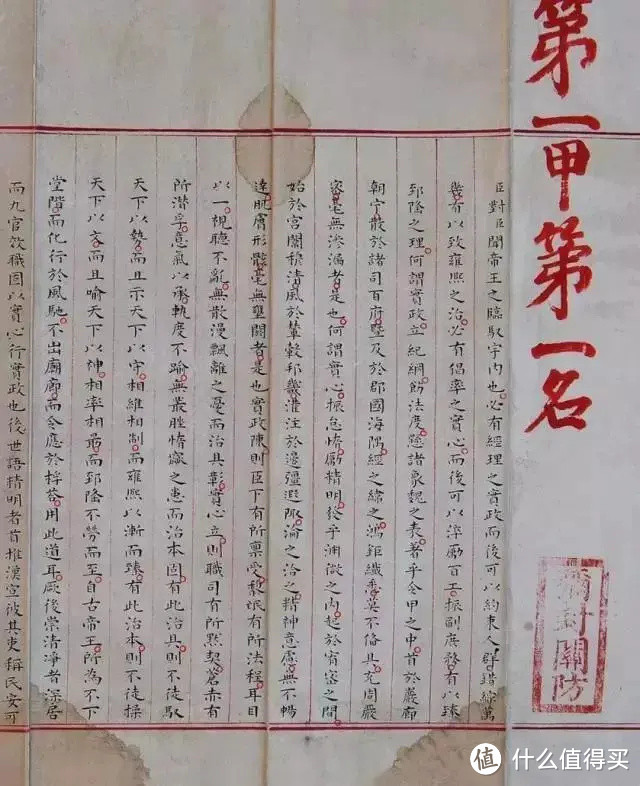 第一甲第一名
彌封關防
臣對臣聞帝王之臨馭宇內也必有經理之實政而後可以約束人群錯綜萬
幾有以致雍熙之治必有倡率之實心而後可以淬勵百工振刷庶務有以臻
郅隆之理何謂實政立紀綱飭法度懸諸象魏之表著乎令甲之中首於巖廊
朝宁散於諸司百府暨及於郡國海隅經之緯之鴻鉅纖悉莫不備具充周嚴
密毫無滲漏者是也何謂實心振怠惰勵精明發乎淵微之內起於宥密之間
始於宮闈穆清風於輦轂邦畿灌注於邊疆遐陬淪之洽之精神意慮無不暢
達肌膚形骸毫無壅閼者是也實政陳則臣下有所稟受黎氓有所法程耳目
以一視聽不亂無散漫飄離之憂而治具彰實心立則職司有所默契蒼赤有
所潛孚意氣以承軌度不踰無叢脞惰窳之患而治本固有此治具則不徒馭
天下以勢而且示天下以守相維相制而雍熙以漸而臻有此治本則不徒操
天下以文而且喻天下以神相率相勖而郅隆不勞而至自古帝王所為不下
堂階而化行於風馳不出廟廊而令應於桴答用此道耳厥後崇清淨者深居
而九官效職固以實心行實政也後世語精明者首推漢宣彼其吏稱民安可
值 什么值得买